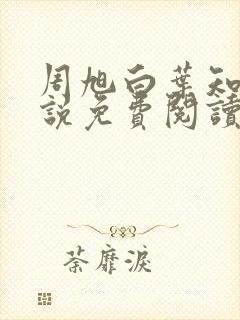 周旭白葉知
說免費閱讀
荼靡淚